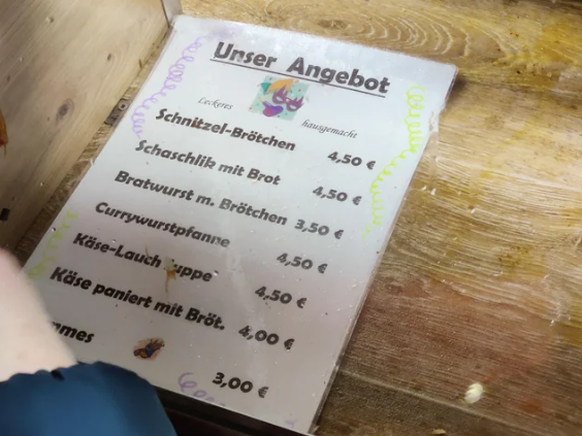 Unser Angebot
Leckeres hausgemacht
Schnitzel-Brötchen 4,50 €
Schaschlik mit Brot 4,50 €
Bratwurst m. Brötchen 3,50 €
Currywurstpfanne 4,50 €
Käse-Lauch 4,50 €
Käse paniert mit Bröt. 4,00 €
3,00 €